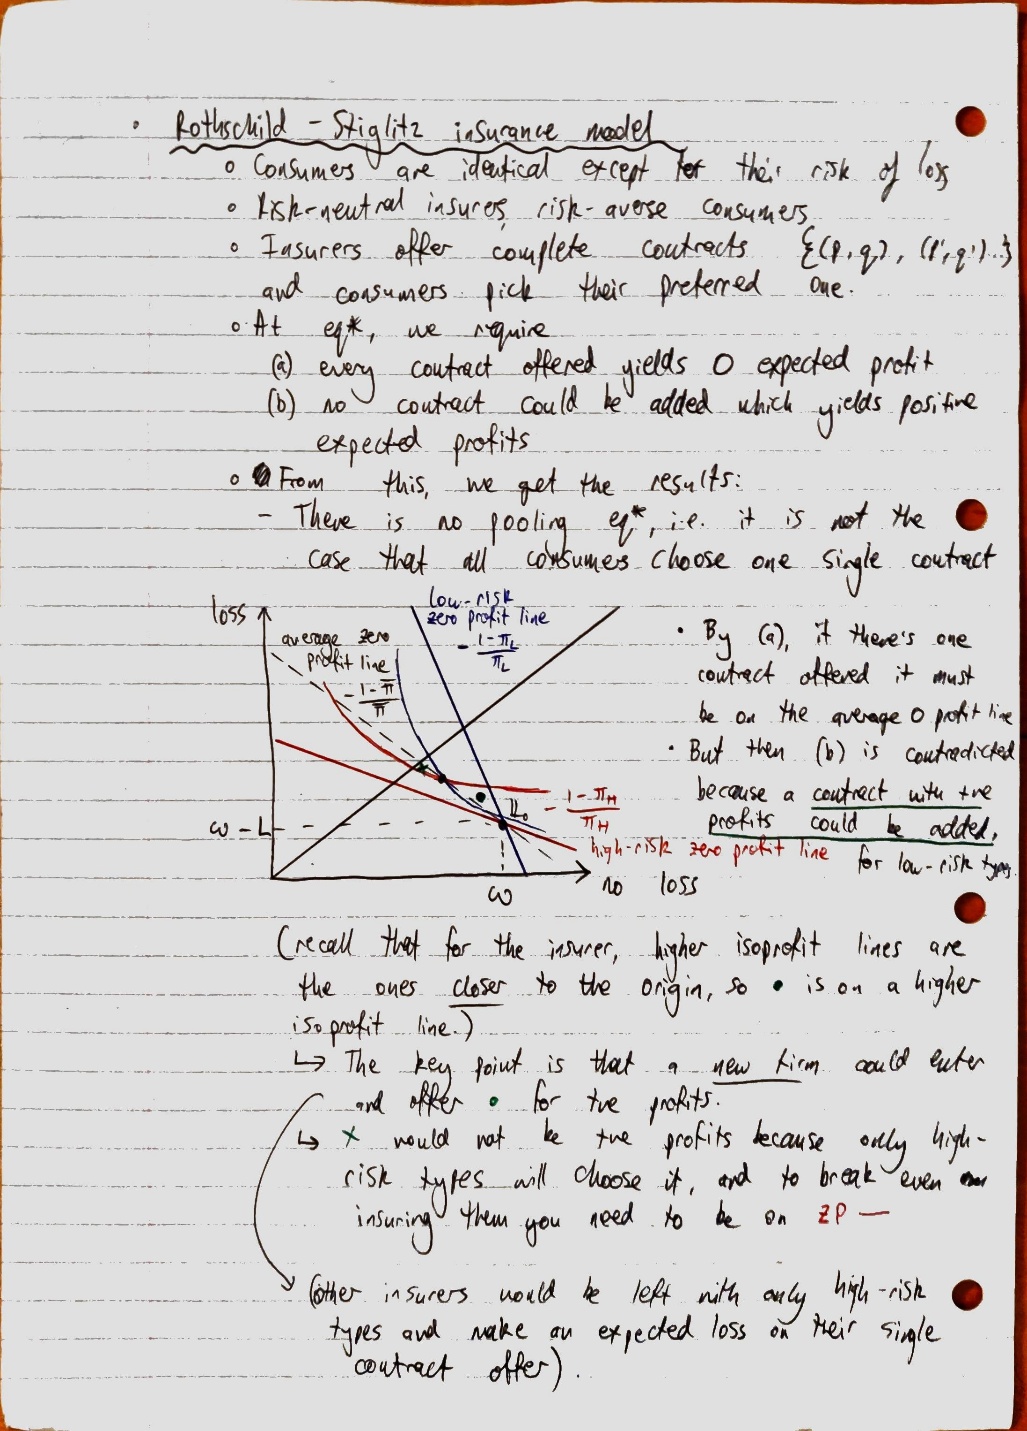 • Rothschild - Stiglitz insurance model
◦ Consumers are identical except for their risk of loss
◦ Risk-neutral insurers, risk-averse consumers
◦ Insurers offer complete contracts {(p,q), (p',q')...}
and consumers pick their preferred one.
◦ At eq*, we require
(a) every contract offered yields 0 expected profit
(b) no contract could be added which yields positive
expected profits
◦ From this, we get the results:
- There is no pooling eq*, i.e. it is not the
case that all consumers choose one single contract
loss
low-risk
zero profit line
- (1-π_L)/π_L
average zero
profit line
- (1-π̄)/π̄
- (1-π_H)/π_H
high-risk zero profit line
ω - L
ω
no loss
• By (a), if there's one
contract offered it must
be on the average 0 profit line
• But then (b) is contradicted
because a contract with +ve
profits could be added,
for low-risk types.
(recall that for the insurer, higher isoprofit lines are
the ones closer to the origin, so • is on a higher
isoprofit line.)
↳ The key point is that a new firm could enter
and offer • for +ve profits.
↳ x would not be +ve profits because only high-
risk types will choose it, and to break even on
insuring them you need to be on ZP —
(other insurers would be left with only high-risk
types and make an expected loss on their single
contract offer).